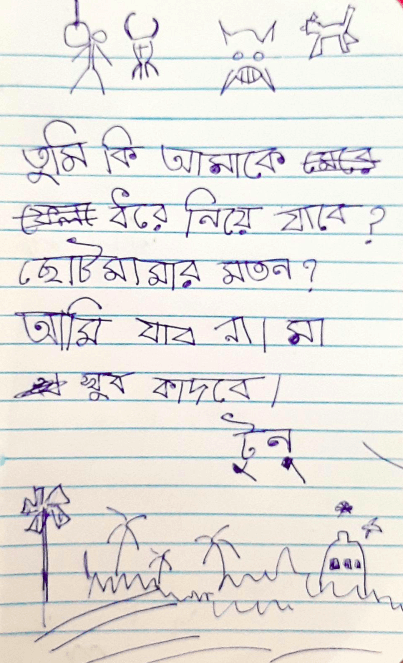 তুমি কি আমাকে মেরে
ফেলা ধরে নিয়ে যাবে?
ছোটমামার মতন?
আমি যাব না। মা
খুব কাদবে।
টুনু